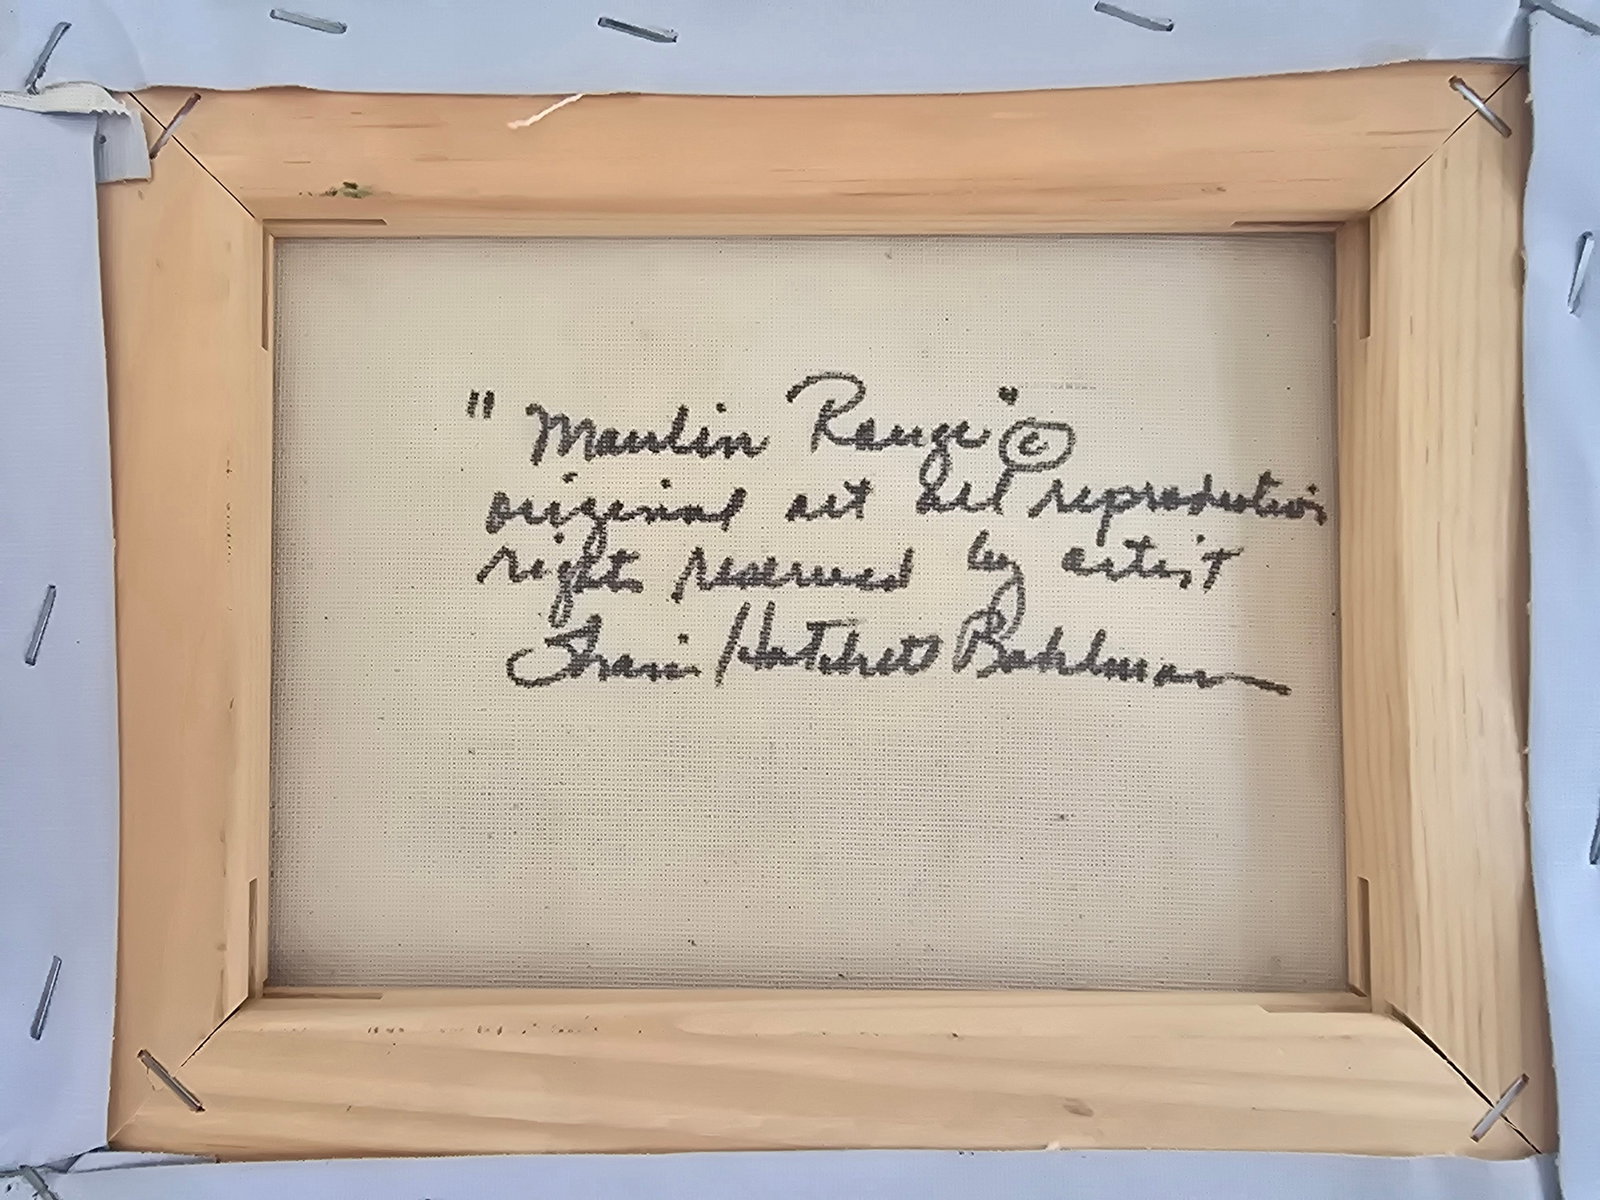 "Maulin Rauge" ©
original art all reproduction
rights reserved by artist
Shari Hatchett Bohlman